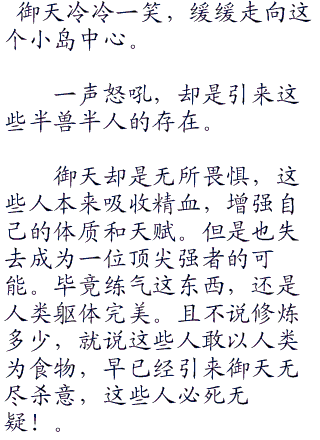 御天冷冷一笑，缓缓走向这
个小岛中心。
一声怒吼，却是引来这
些半兽半人的存在。
御天却是无所畏惧，这
些人本来吸收精血，增强自
己的体质和天赋。但是也失
去成为一位顶尖强者的可
能。毕竟练气这东西，还是
人类躯体完美。且不说修炼
多少，就说这些人敢以人类
为食物，早已经引来御天无
尽杀意，这些人必死无
疑！。